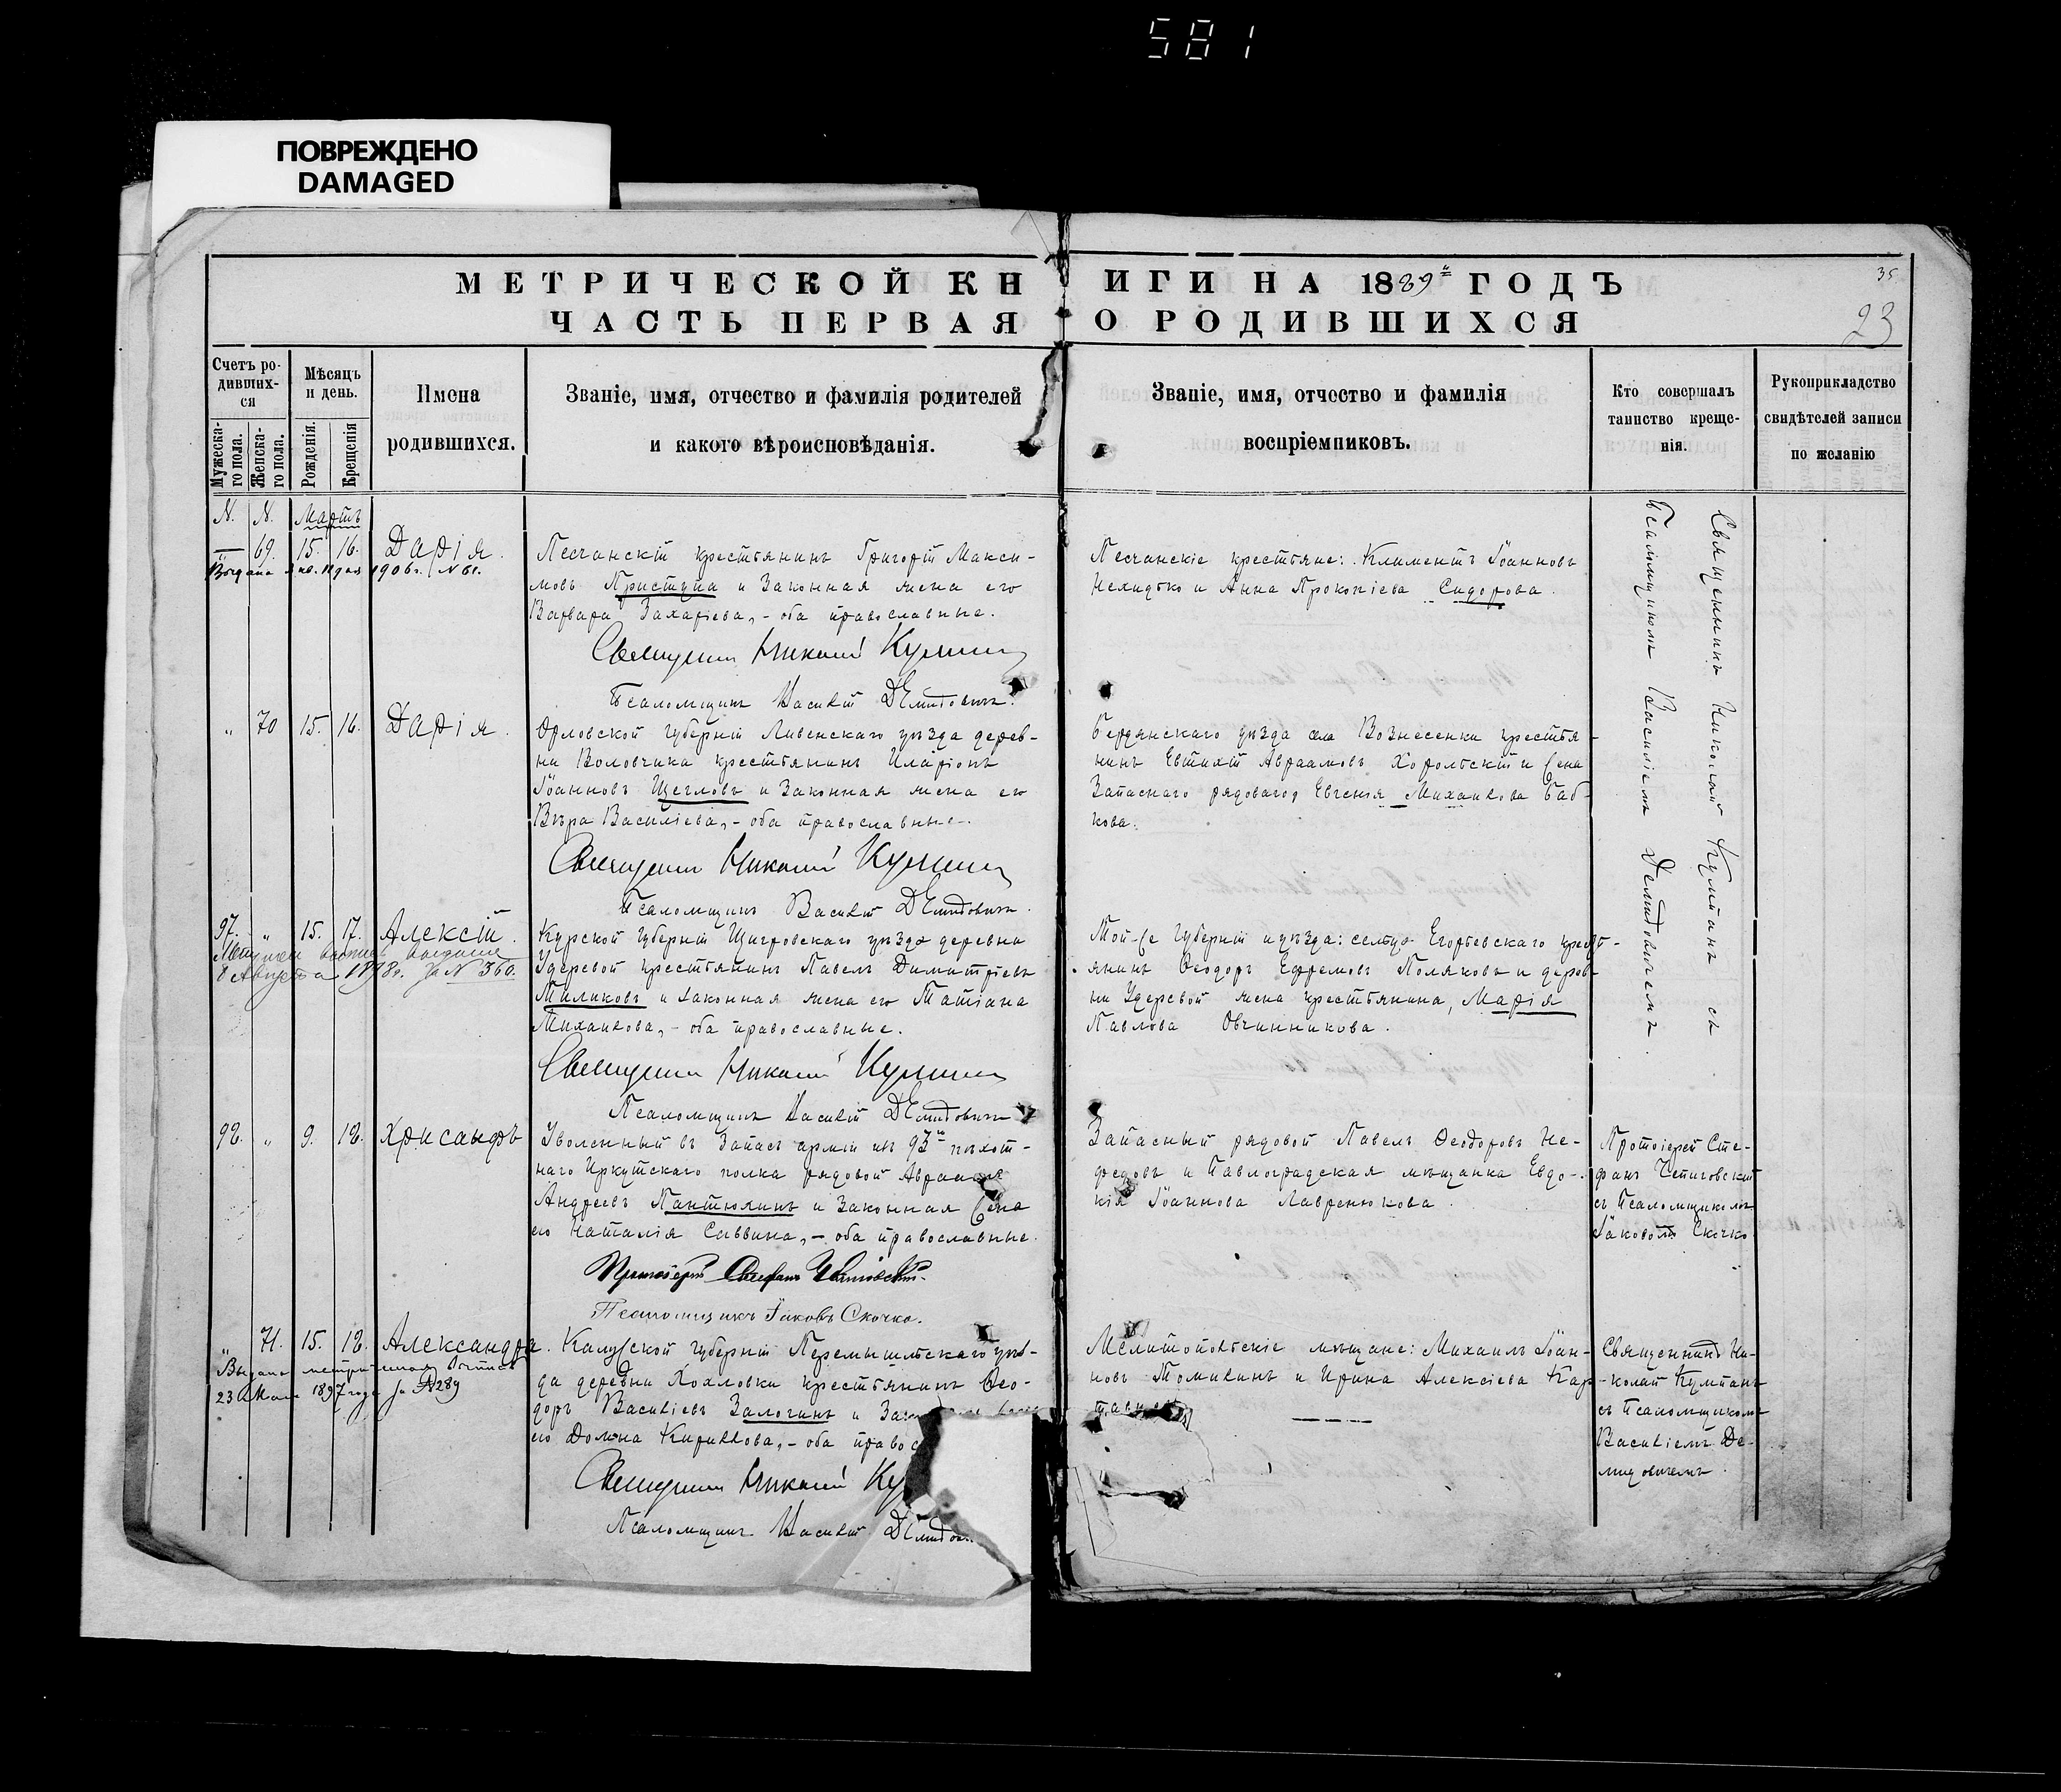 581
ПОВРЕЖДЕНО
DAMAGED
МЕТРИЧЕСКОЙ КН ИГИ НА 1889 ГОДЪ
35
ЧАСТЬ ПЕРВАЯ О РОДИВШИХСЯ
23
Счетъ ро-
дивших-
ся
Мужеска-
го пола.
Женска-
го пола.
Мѣсяцъ
и день.
Рожденія.
Крещенія
Имена
родившихся.
Званіе, имя, отчество и фамилія родителей
и какого вѣроисповѣданія.
Званіе, имя, отчество и фамилія
воспріемниковъ.
Кто совершалъ
таинство креще-
нія.
Рукоприкладство
свидѣтелей записи
по желанію
N. N. Мартъ
— 69. 15. 16. Дарія.
Выдана 1906 г. N 61.
Песчанскій крестьянинъ Григорій Макси-
мовъ Приступа и законная жена его
Варвара Захаріева, – оба православные.
Священникъ Николай
Псаломщикъ Василій Демидовичъ.
Песчанскіе крестьяне: Климентъ Іоанновъ
и Анна Прокопіева Сидорова.
Священникъ Николай Кумпанъ съ
Псаломщикомъ Василіемъ Демидовичемъ.
" 70 15. 16. Дарія.
Орловской губерніи Ливенскаго уѣзда дерев-
ни Воловчика крестьянинъ Иларіонъ
Іоанновъ Щегловъ и законная жена его
Вѣра Василіева, – оба православные.
Священникъ Николай
Псаломщикъ Василій Демидовичъ.
Бердянскаго уѣзда села Вознесенки крестья-
нинъ Евтихій Авраамовъ Хорольскій и жена
запаснаго рядоваго, Евгенія Михаилова Баб-
кова.
97. " 15. 17. Алексій.
8 Августа 1898 г. за N 360.
Курской губерніи Щигровскаго уѣзда деревни
Удеревой крестьянинъ Павелъ Димитріевъ
и законная жена его Татіана
Михаилова, – оба православные.
Священникъ Николай
Псаломщикъ Василій Демидовичъ
Той-же губерніи и уѣзда: сельца Егорьевскаго крест-
янинъ Ѳеодоръ Ефремовъ Поляковъ и дерев-
ни Удеревой жена крестьянина, Марія
Павлова Овчинникова.
98. " 9. 18. Хрисанфъ
Уволенный въ запасъ арміи изъ 93го пѣхот-
наго Иркутскаго полка рядовой Авраамъ
Андреевъ Пантюхинъ и законная жена
его Наталія Саввина, – оба православные.
Протоіерей Стефанъ
Псаломщикъ Іаковъ Скочко.
Запасный рядовой Павелъ Ѳеодоровъ Не-
федовъ и Павлоградская мѣщанка Евдо-
кія Іоаннова Лавренюкова.
Протоіерей Сте-
фанъ
съ Псаломщикомъ
Іаковомъ Скочко
" 71. 15. 18. Александра.
Выдана метрическая выпись
23 1897 года за N 289
Калужской губерніи Перемышльскаго уѣз-
да деревни Хохловки крестьянинъ Ѳео-
доръ Василіевъ Залогинъ и
его Домна Кириллова, – оба правос
Священникъ Николай Ку
Псаломщикъ Василій
Мелитопольскіе мѣщане: Михаилъ Іоан-
новъ Томилинъ и Ирина Алексіева Кар-
Священникъ Ни-
колай Кумпанъ
съ Псаломщикомъ
Василіемъ Де-
мидовичемъ.